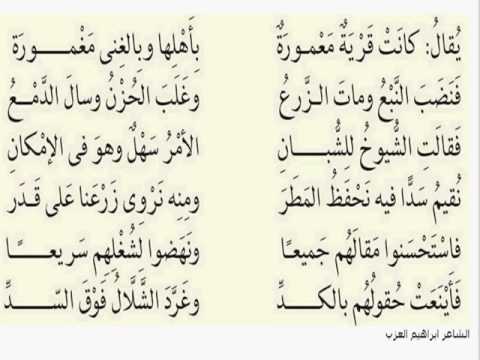 يُقالُ: كانَتْ قَرْيَةٌ مَعْمـورَةٌ بِأَهْلِها وبالغِنى مَغْمـــورَة
فَنَضَبَ النَّبْعُ وماتَ الـزَّرعُ وغَلَبَ الحُزْنُ وسالَ الدَّمْـعُ
فَقالَتِ الشُّيوخُ لِلشُّبـــانِ الأمْرُ سَهْلٌ وهوَ فى الإمْكانِ
نُقيمُ سَدًّا فيه نَحْفَظُ المَطَرَ ومِنه نَرْوِى زَرْعَنا عَلى قَـدَر
فاسْتَحْسَنوا مَقالَهُم جَميعًا ونَهَضوا لِشُغْلِهِم سَريعـــًا
فَأَيْنَعَتْ حُقولُهُم بالكَـدِّ وغَرَّدَ الشَّلَالُ فَوْقَ السَّـــدِّ
الشاعر ابراهيم العزب